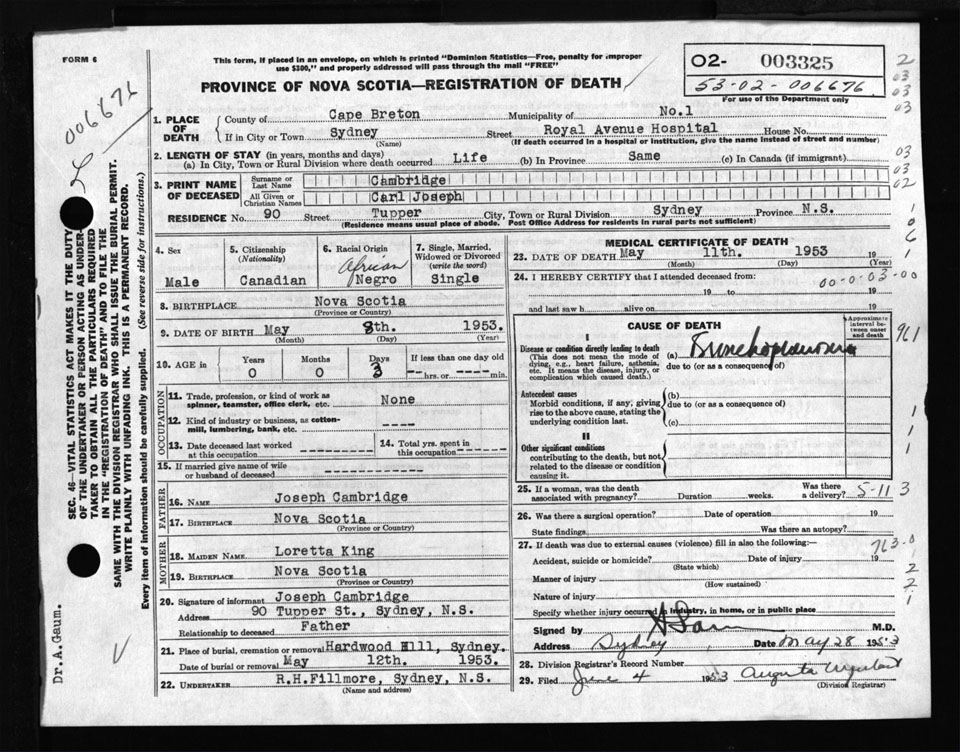 FORM 6
This form, if placed in an envelope, on which is printed "Dominion Statistics—Free, penalty for improper
use $300," and properly addressed will pass through the mail "FREE"
PROVINCE OF NOVA SCOTIA—REGISTRATION OF DEATH
O2- 003325
53-02-006676
For use of the Department only
006676
1. PLACE OF DEATH
County of Cape Breton Municipality of No.1
If in City or Town Sydney Street Royal Avenue Hospital House No.
(Name) (If death occurred in a hospital or institution, give the name instead of street and number)
2. LENGTH OF STAY (in years, months and days)
(a) In City, Town or Rural Division where death occurred Life (b) In Province Same (c) In Canada (if immigrant)
3. PRINT NAME OF DECEASED
Surname or Last Name Cambridge
All Given or Christian Names Carl Joseph
RESIDENCE No. 90 Street Tupper City, Town or Rural Division Sydney Province N.S.
(Residence means usual place of abode. Post Office Address for residents in rural parts not sufficient)
4. Sex
Male
5. Citizenship
(Nationality)
Canadian
6. Racial Origin
African
Negro
7. Single, Married,
Widowed or Divorced
(write the word)
Single
8. BIRTHPLACE Nova Scotia
(Province or Country)
9. DATE OF BIRTH May 8th. 1953.
(Month) (Day) (Year)
10. AGE in
Years Months Days If less than one day old
0 0 3 --- hrs. or --- min.
OCCUPATION
11. Trade, profession, or kind of work as
spinner, teamster, office clerk, etc. None
12. Kind of industry or business, as cotton-
mill, lumbering, bank, etc. ----
13. Date deceased last worked
at this occupation
14. Total yrs. spent in
this occupation
15. If married give name of wife
or husband of deceased
FATHER
16. NAME Joseph Cambridge
17. BIRTHPLACE Nova Scotia
(Province or Country)
MOTHER
18. MAIDEN NAME Loretta King
19. BIRTHPLACE Nova Scotia
(Province or Country)
20. Signature of informant Joseph Cambridge
Address 90 Tupper St., Sydney, N.S.
Relationship to deceased Father
21. Place of burial, cremation or removal Hardwood Hill, Sydney.
Date of burial or removal May 12th. 1953.
22. UNDERTAKER R.H.Fillmore, Sydney, N.S.
(Name and address)
MEDICAL CERTIFICATE OF DEATH
23. DATE OF DEATH May 11th. 1953 19
(Month) (Day) (Year)
24. I HEREBY CERTIFY that I attended deceased from:
00-0-03-00
19 to 19
and last saw h alive on 19
CAUSE OF DEATH
Approximate interval between onset and death
I
Disease or condition directly leading to death
(This does not mean the mode of
dying, e.g., heart failure, asthenia,
etc. It means the disease, injury, or
complication which caused death.)
(a)
due to (or as a consequence of)
Antecedent causes
Morbid conditions, if any, giving
rise to the above cause, stating the
underlying condition last.
(b)
due to (or as a consequence of)
(c)
II
Other significant conditions
contributing to the death, but not
related to the disease or condition
causing it.
25. If a woman, was the death
associated with pregnancy? Duration weeks. Was there
a delivery? 5-11 3
26. Was there a surgical operation? Date of operation 19
State findings Was there an autopsy?
27. If death was due to external causes (violence) fill in also the following:—
763-0
Accident, suicide or homicide? Date of injury 19
(State which)
Manner of injury
(How sustained)
Nature of injury
Specify whether injury occurred in industry, in home, or in public place
Signed by M.D.
Address Sydney Date May 28 1953
28. Division Registrar's Record Number
29. Filed June 4 1953
(Division Registrar)
SEC. 46—VITAL STATISTICS ACT MAKES IT THE DUTY
OF THE UNDERTAKER OR PERSON ACTING AS UNDER-
TAKER TO OBTAIN ALL THE PARTICULARS REQUIRED
IN THE "REGISTRATION OF DEATH" AND TO FILE THE
SAME WITH THE DIVISION REGISTRAR WHO SHALL ISSUE THE BURIAL PERMIT.
WRITE PLAINLY WITH UNFADING INK. THIS IS A PERMANENT RECORD.
Every item of Information should be carefully supplied. (See reverse side for instructions.)
Dr.A.Gaum.
2
03
03
03
03
03
02
1
0
6
1
961
1
1
1
1
2
2
1